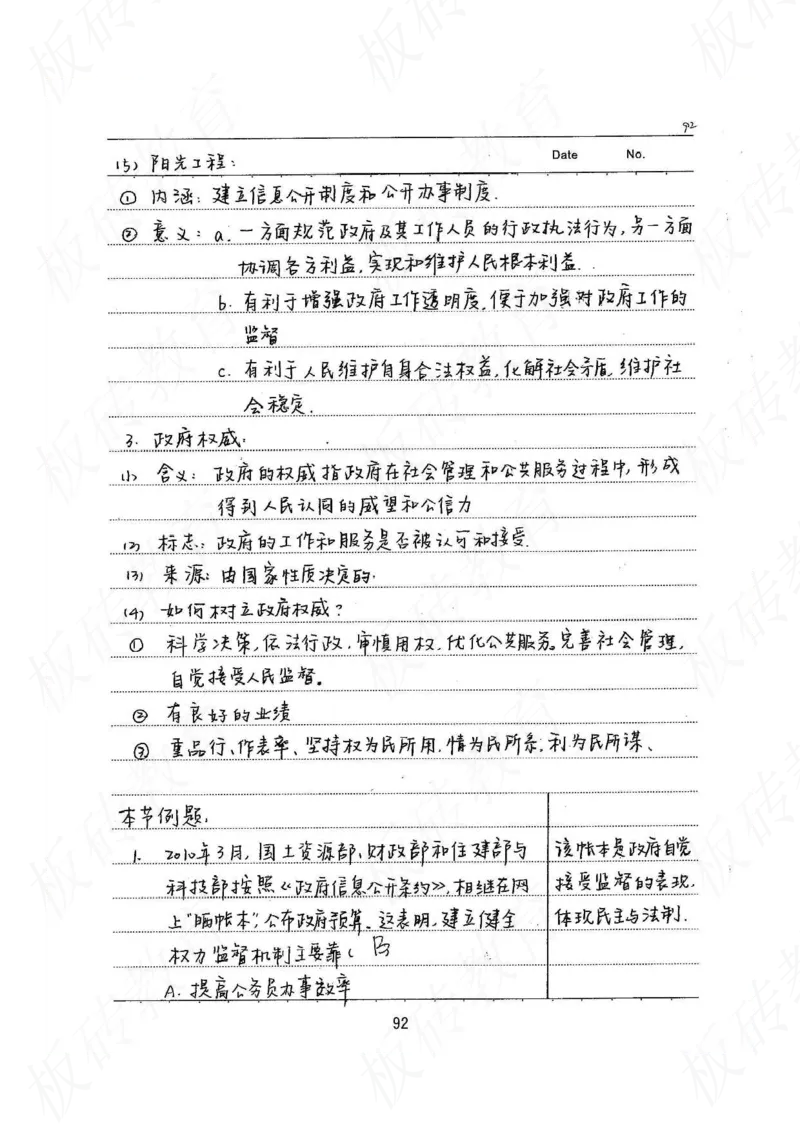 92
Date No.
(5) 阳光工程：
① 内涵：建立信息公开制度和公开办事制度.
② 意义：a. 一方面规范政府及其工作人员的行政执法行为，另一方面
协调各方利益，实现和维护人民根本利益.
b. 有利于增强政府工作透明度，便于加强对政府工作的
监督
c. 有利于人民维护自身合法权益，化解社会矛盾，维护社
会稳定.
3. 政府权威：
(1) 含义：政府的权威指政府在社会管理和公共服务过程中，形成
得到人民认同的威望和公信力
(2) 标志：政府的工作和服务是否被认可和接受.
(3) 来源：由国家性质决定的.
(4) 如何树立政府权威？
① 科学决策，依法行政，审慎用权，优化公共服务。完善社会管理，
自觉接受人民监督。
② 有良好的业绩
③ 重品行、作表率、坚持权为民所用，情为民所系，利为民所谋、
本节例题：
1. 2010年3月，国土资源部、财政部和住建部与 该帐本是政府自觉
科技部按照《政府信息公开条约》，相继在网 接受监督的表现，
上“晒帐本”，公布政府预算。这表明，建立健全 体现民主与法制.
权力监督机制主要靠（ B
A. 提高公务员办事效率
92
板砖教育